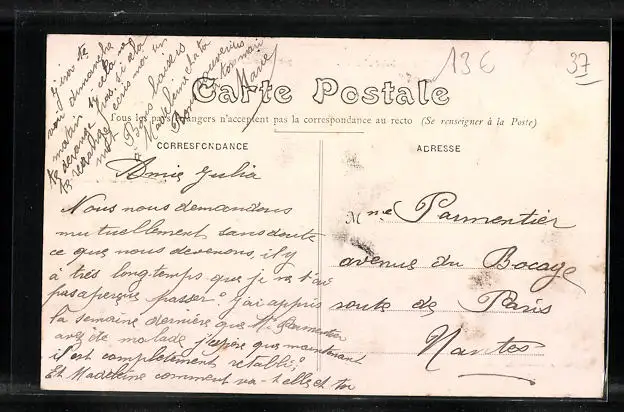 13€
37
Carte Postale
Tous les pays étrangers n'acceptent pas la correspondance au recto (Se renseigner à la Poste)
CORRESPONDANCE
ADRESSE
Amie Julia
Nous nous demandons
mutuellement sans doute
ce que nous devenons, il y
à très longtemps que je ne t'ai
pas aperçue passer. J'ai appris
la semaine dernière que Mr Parmentier
avait été malade j'espère que maintenant
il est complètement rétabli.
Et Madeleine comment va-t-elle et toi
Mme Parmentier
avenue du Bocage
route de Paris
Nantes
dimanche
matin
Bons baisers
à Madeleine et à toi
Marie